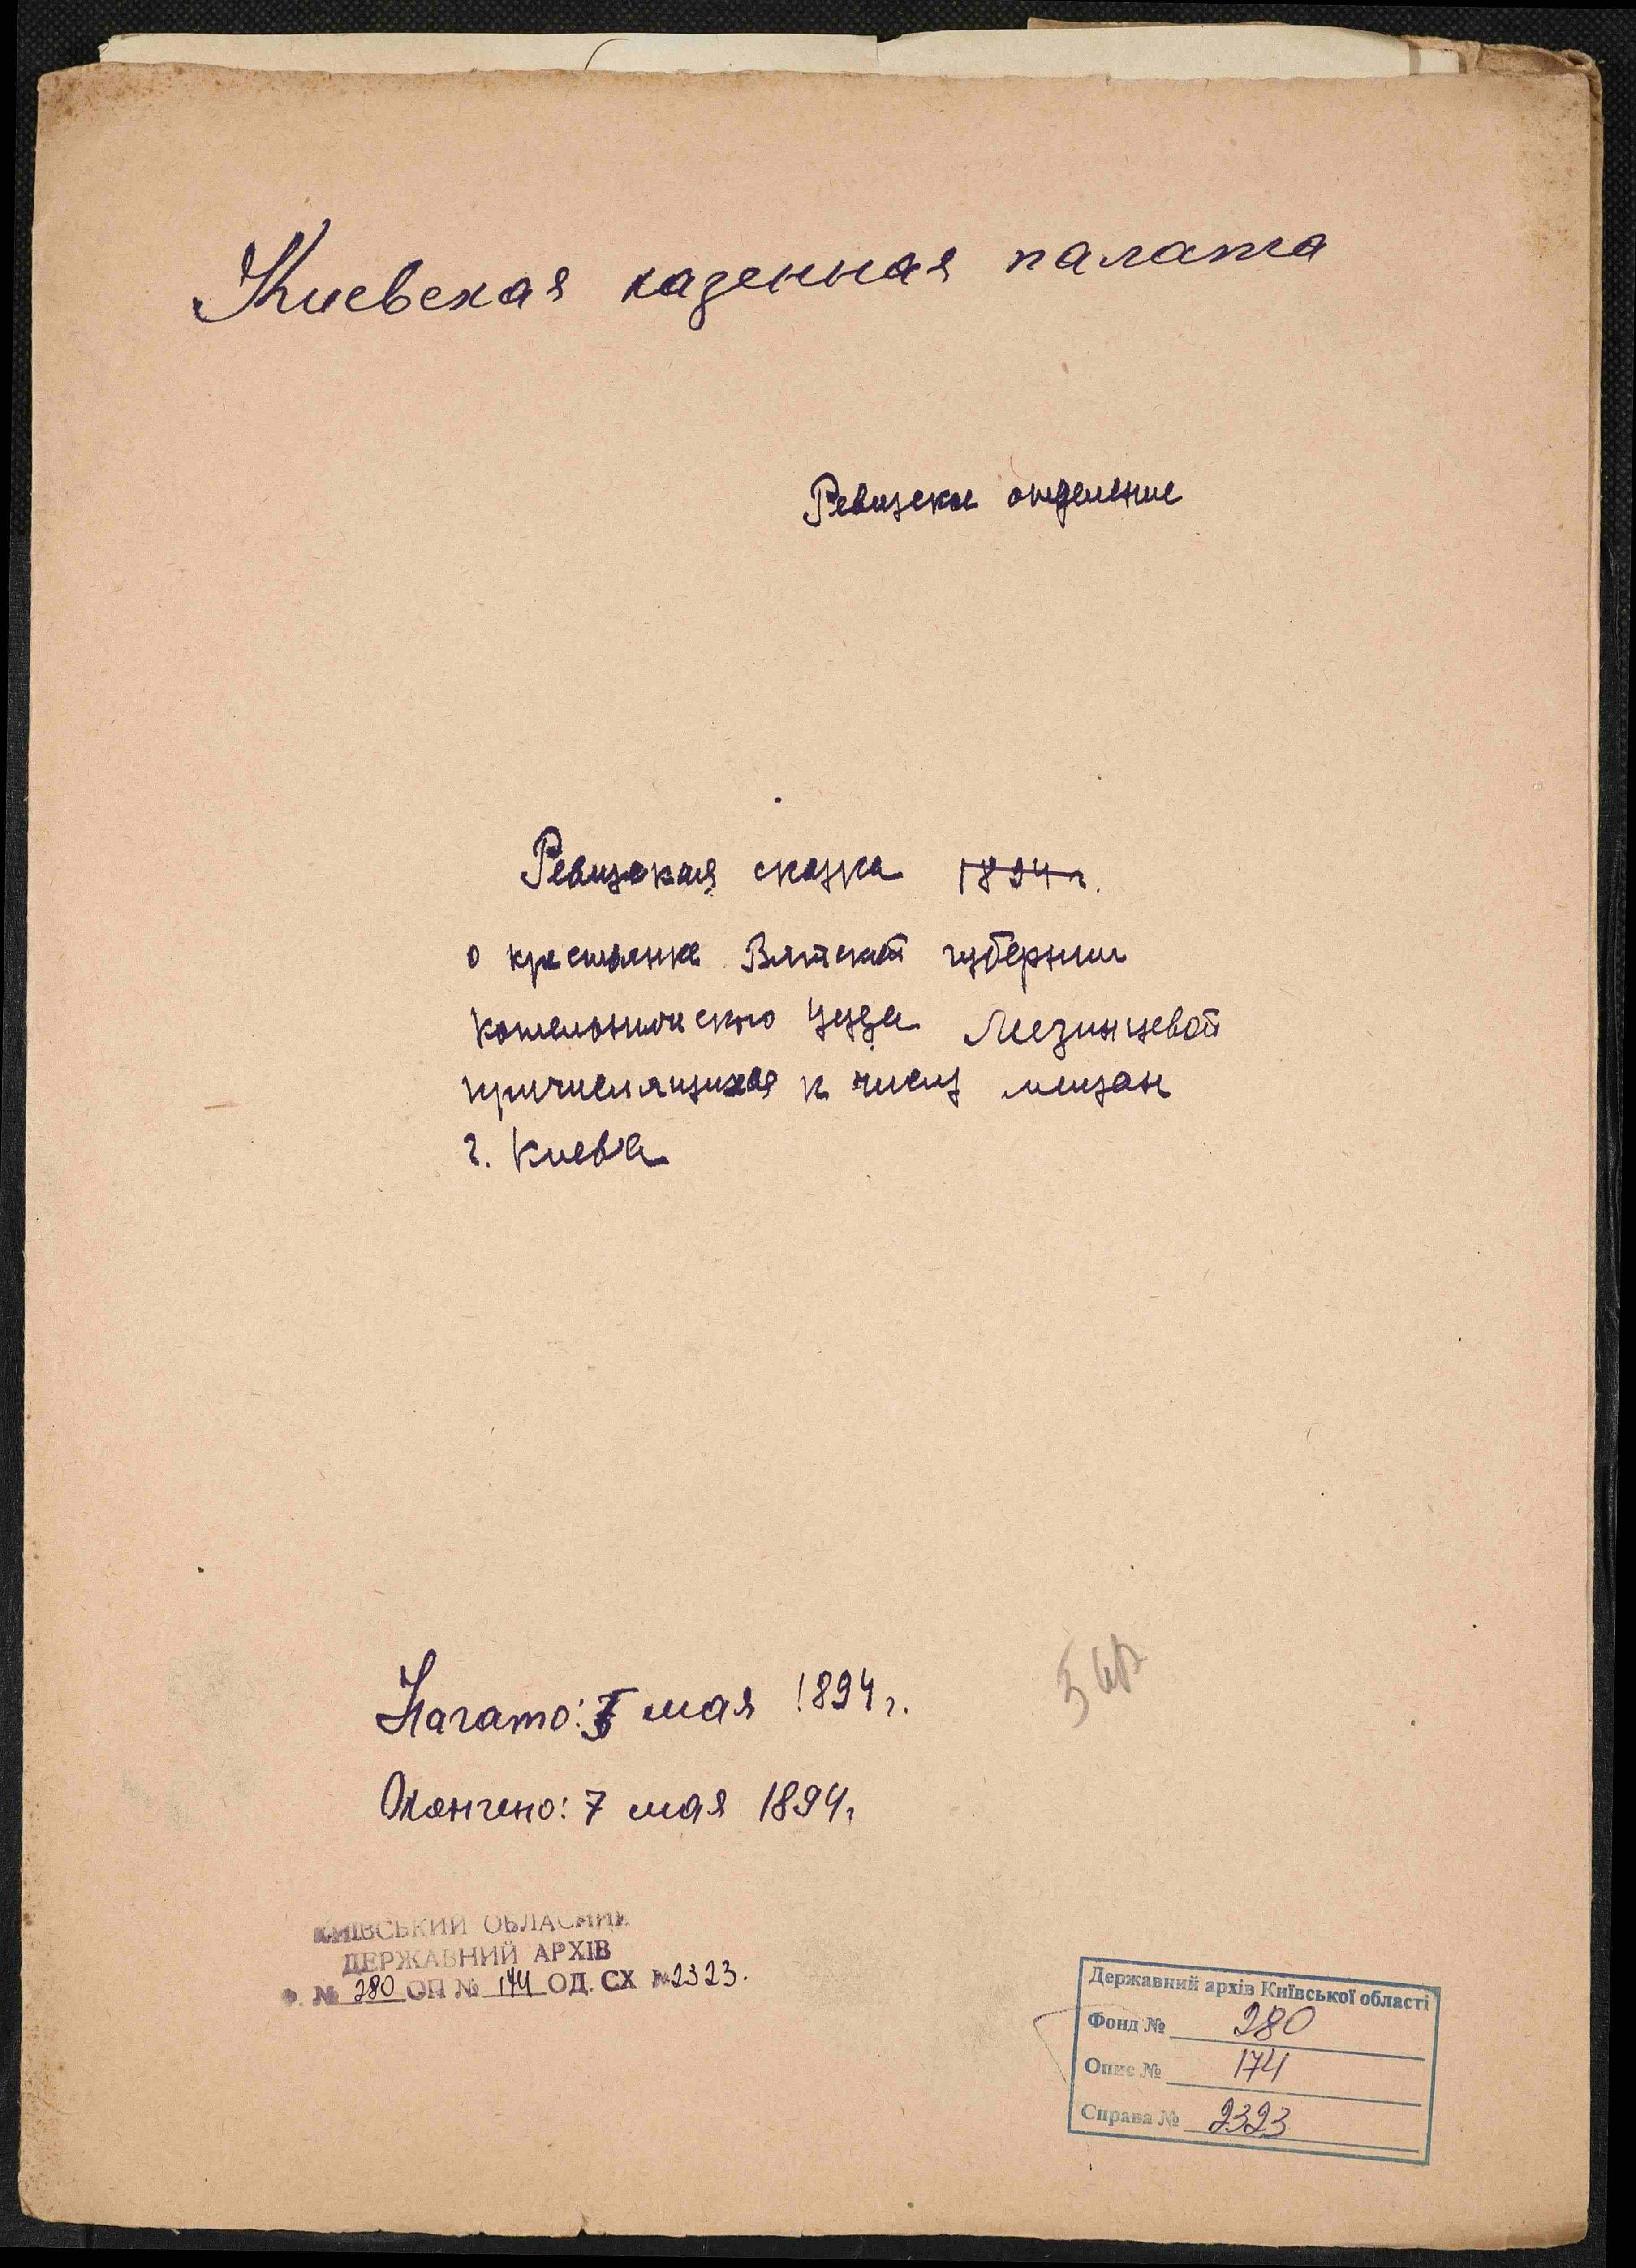 Киевская казенная палата
Ревизское отделение
Ревизская сказка 1894 г.
о крестьянке Вятской губернии
Котельнического уезда Мезинцевой
причисляющихся к числу мещан
г. Киева
Начато: мая 1894 г.
Окончено: 7 мая 1894 г.
КИЇВСЬКИЙ ОБЛАСНИЙ
ДЕРЖАВНИЙ АРХІВ
Ф. № 280 ОП № 174 ОД. СХ № 2323.
Державний архів Київської області
Фонд № 280
Опис № 174
Справа № 2323